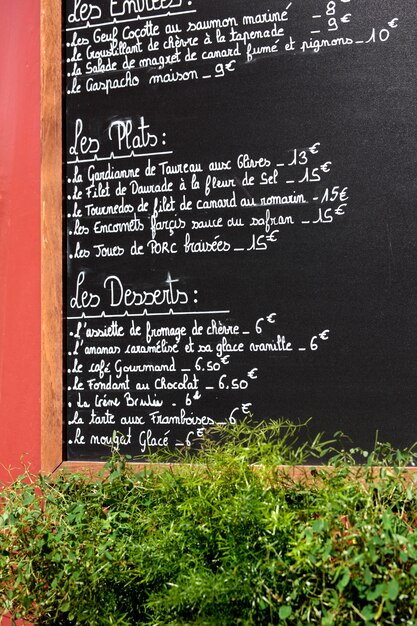 Les Entrées :
. Les Oeuf Cocotte au saumon mariné _ 8€
. Le Croustillant de chèvre à la tapenade _ 9€
. La Salade de magret de canard fumé et pignons _ 10€
. Le Gaspacho maison _ 9€
Les Plats :
. La Gardianne de Taureau aux Olives _ 13€
. Le Filet de Daurade à la fleur de Sel _ 15€
. Le Tournedos de filet de canard au romarin - 15€
. Les Encornets farçis sauce au safran _ 15€
. Les Joues de PORC braisées _ 15€
Les Desserts :
. L'assiette de fromage de chèvre _ 6€
. L'ananas caramélisé et sa glace vanille _ 6€
. Le café Gourmand _ 6.50€
. Le Fondant au Chocolat _ 6.50€
. La Crème Brulée _ 6€
. La tarte aux Framboises _ 6€
. Le nougat Glacé _ 6€